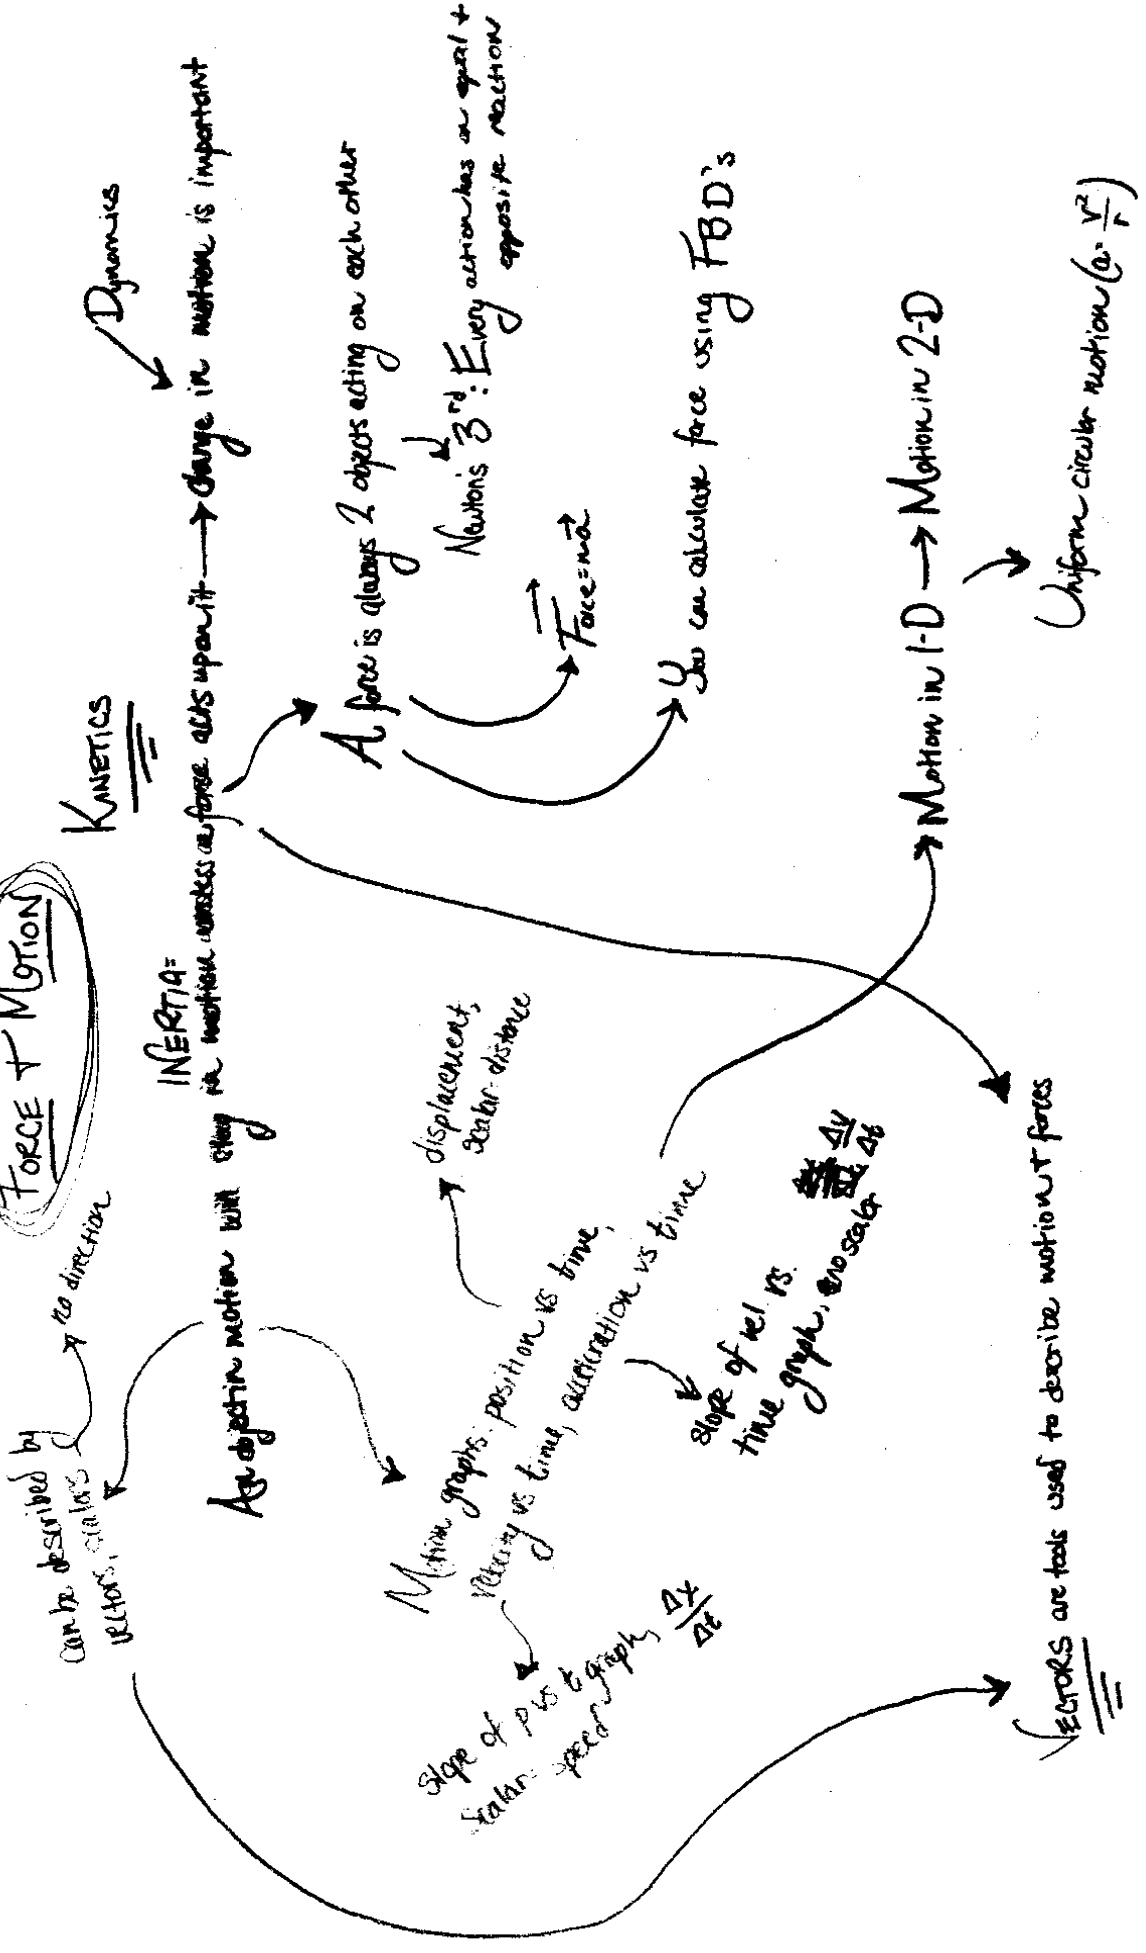 FORCE + MOTION
KINETICS
Dynamics
can be described by
vectors, scalars
no direction
INERTIA=
An object in motion will stay in motion unless a force acts upon it → change in motion is important
A force is always 2 objects acting on each other
Newton's 3rd: Every action has an equal +
opposite reaction
Force = ma
You can calculate force using FBD's
displacement,
scalar: distance
Motion graphs: position vs time,
velocity vs time, acceleration vs time
slope of p vs t graph, Δx/Δt
scalar: speed
slope of vel vs.
time graph, no scalar Δv/Δt
Motion in 1-D → Motion in 2-D
Uniform circular motion (a = v²/r)
VECTORS are tools used to describe motion + forces